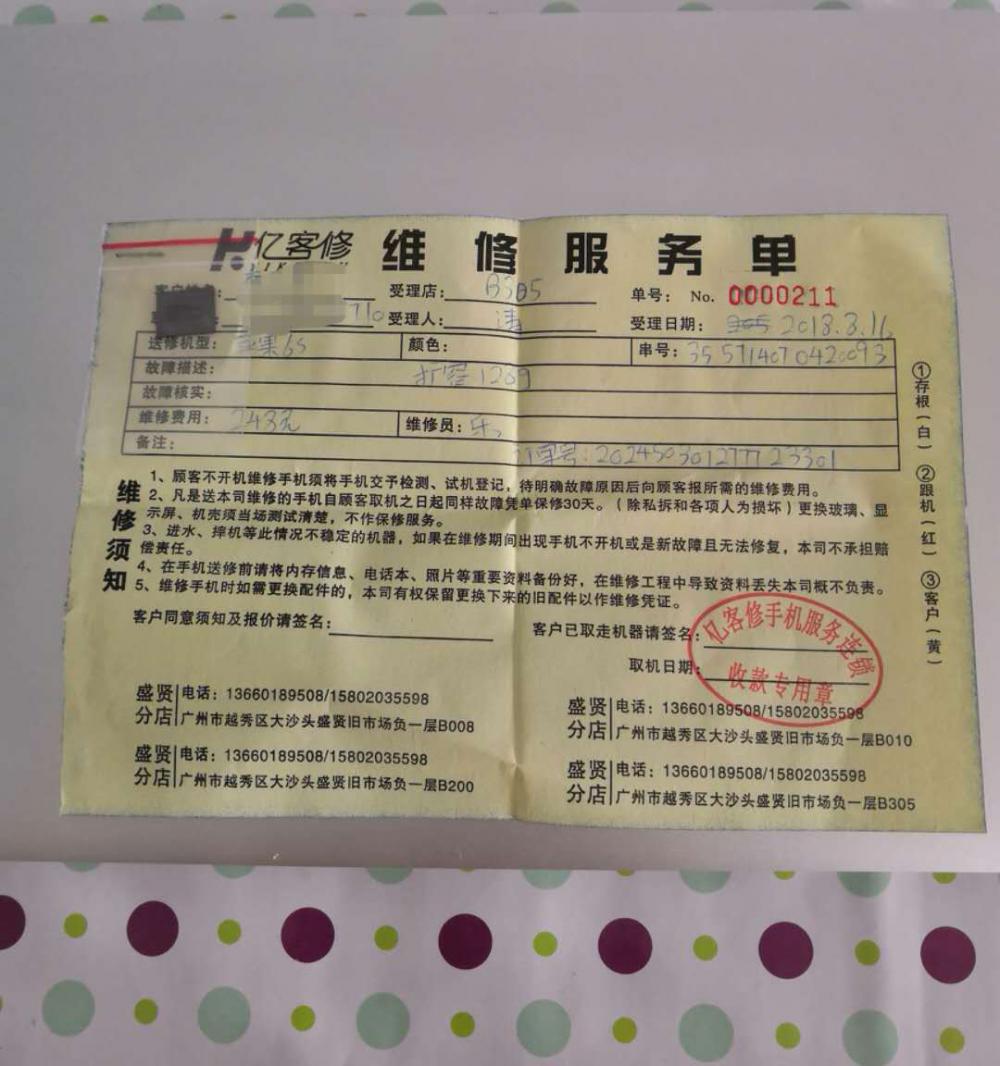 亿客修 维修服务单
受理店: B305 单号: No. 0000211
710 受理人: 受理日期: 2018.3.16
送修机型: 苹果6S 颜色: 串号: 355714070420093
故障描述: 扩容128g
故障核实:
维修费用: 243元 维修员:
备注: 订单号: 202450301277723301
维修须知
1、顾客不开机维修手机须将手机交予检测、试机登记，待明确故障原因后向顾客报所需的维修费用。
2、凡是送本司维修的手机自顾客取机之日起同样故障凭单保修30天。（除私拆和各项人为损坏）更换玻璃、显
示屏、机壳须当场测试清楚，不作保修服务。
3、进水、摔机等此情况不稳定的机器，如果在维修期间出现手机不开机或是新故障且无法修复，本司不承担赔
偿责任。
4、在手机送修前请将内存信息、电话本、照片等重要资料备份好，在维修工程中导致资料丢失本司概不负责。
5、维修手机时如需更换配件的，本司有权保留更换下来的旧配件以作维修凭证。
客户同意须知及报价请签名:
客户已取走机器请签名:
取机日期:
亿客修手机服务连锁
收款专用章
盛贤分店 电话: 13660189508/15802035598
广州市越秀区大沙头盛贤旧市场负一层B008
盛贤分店 电话: 13660189508/15802035598
广州市越秀区大沙头盛贤旧市场负一层B010
盛贤分店 电话: 13660189508/15802035598
广州市越秀区大沙头盛贤旧市场负一层B200
盛贤分店 电话: 13660189508/15802035598
广州市越秀区大沙头盛贤旧市场负一层B305
①存根（白） ②跟机（红） ③客户（黄）